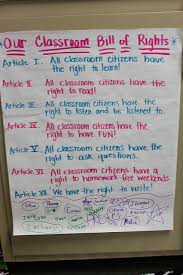 Our Classroom Bill of Rights
Article I. All classroom citizens have
the right to learn!
Article II. All classroom citizens have the
right to read!
Article III. All classroom citizens have the
right to listen and be listened to.
Article IV. All classroom citizens have the
right to have FUN!
Article V. All classroom citizens have the
right to ask questions.
Article VI. All classroom citizens have a
right to homework-free weekends
Article VII. We have the right to write!
Zachary